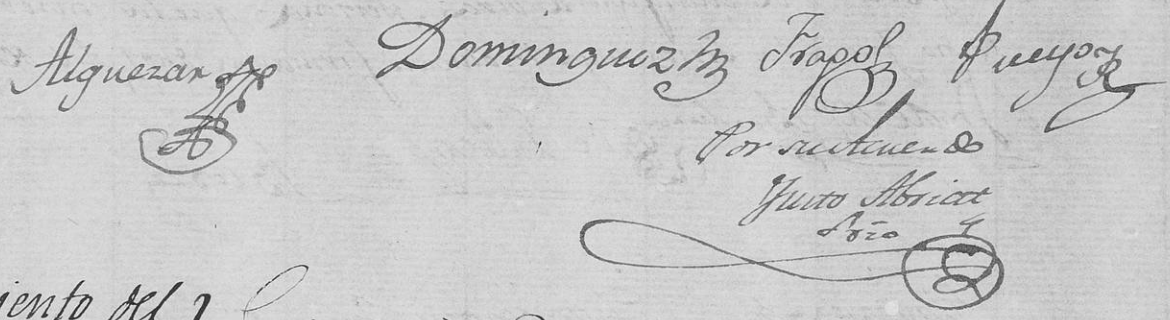 Alguezar Dominguez Frapol Pueyo
Por su Acuerdo
Justo Abriat
Srio
iento del